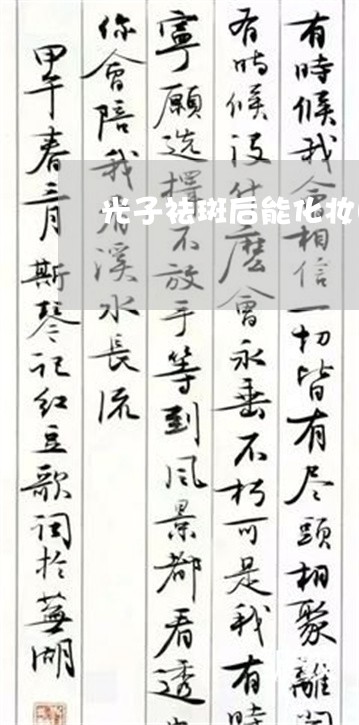 光子祛斑后能化妆
有時候我会相信一切皆有尽頭相聚離開
有时候没什麼會永垂不朽可是我有時
寧願选擇不放手等到风景都看透
你會陪我看溪水長流
甲午春三月斯琴记红豆歌词於蕪湖